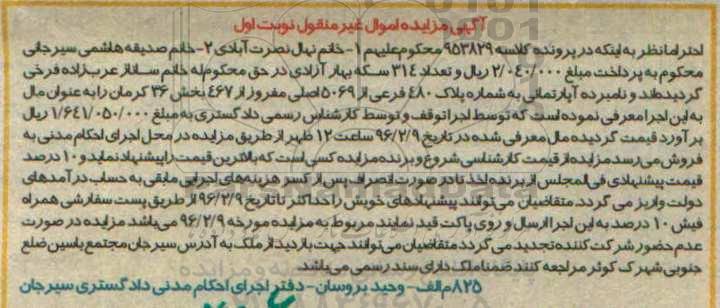 آگهی مزایده اموال غیر منقول نوبت اول
احتراما نظر به اینکه در پرونده کلاسه ۹۵۳۸۲۹ محکوم علیهم ۱- خانم نهال نصرت آبادی ۲- خانم صدیقه هاشمی سیرجانی
محکوم به پرداخت مبلغ ۲/۰۴۰/۰۰۰ ریال و تعداد ۳۱۴ سکه بهار آزادی در حق محکوم له خانم ساناز عرب زاده فرخی
گردیده اند و نامبرده آپارتمانی به شماره پلاک ۴۸۰ فرعی از ۵۰۶۹ اصلی مفروز از ۴۶۷ بخش ۳۶ کرمان را به عنوان مال
به این اجرا معرفی نموده است که توسط اجرا توقف و توسط کارشناس رسمی دادگستری به مبلغ ۱/۶۴۱/۰۵۰/۰۰۰ ریال
برآورد قیمت گردیده مال معرفی شده در تاریخ ۹۶/۲/۹ ساعت ۱۲ ظهر از طریق مزایده در محل اجرای احکام مدنی به
فروش می رسد مزایده از قیمت کارشناسی شروع و برنده مزایده کسی است که بالاترین قیمت را پیشنهاد نماید و ۱۰ درصد
قیمت پیشنهادی فی المجلس از برنده اخذ تا در صورت انصراف پس از کسر هزینه های اجرایی مابقی به حساب درآمدهای
دولت واریز می گردد متقاضیان می توانند پیشنهادهای خویش را حداکثر تا تاریخ ۹۶/۲/۹ از طریق پست سفارشی همراه
فیش ۱۰ درصد به این اجرا ارسال و روی پاکت قید نمایند مربوط به مزایده مورخه ۹۶/۲/۹ می باشد مزایده در صورت
عدم حضور شرکت کننده تجدید می گردد متقاضیان می توانند جهت بازدید از ملک به آدرس سیرجان مجتمع یاسین ضلع
جنوبی شهرک کوثر مراجعه کنند ضمنا ملک دارای سند رسمی می باشد.
۸۲۵ م الف - وحید بروسان - دفتر اجرای احکام مدنی دادگستری سیرجان